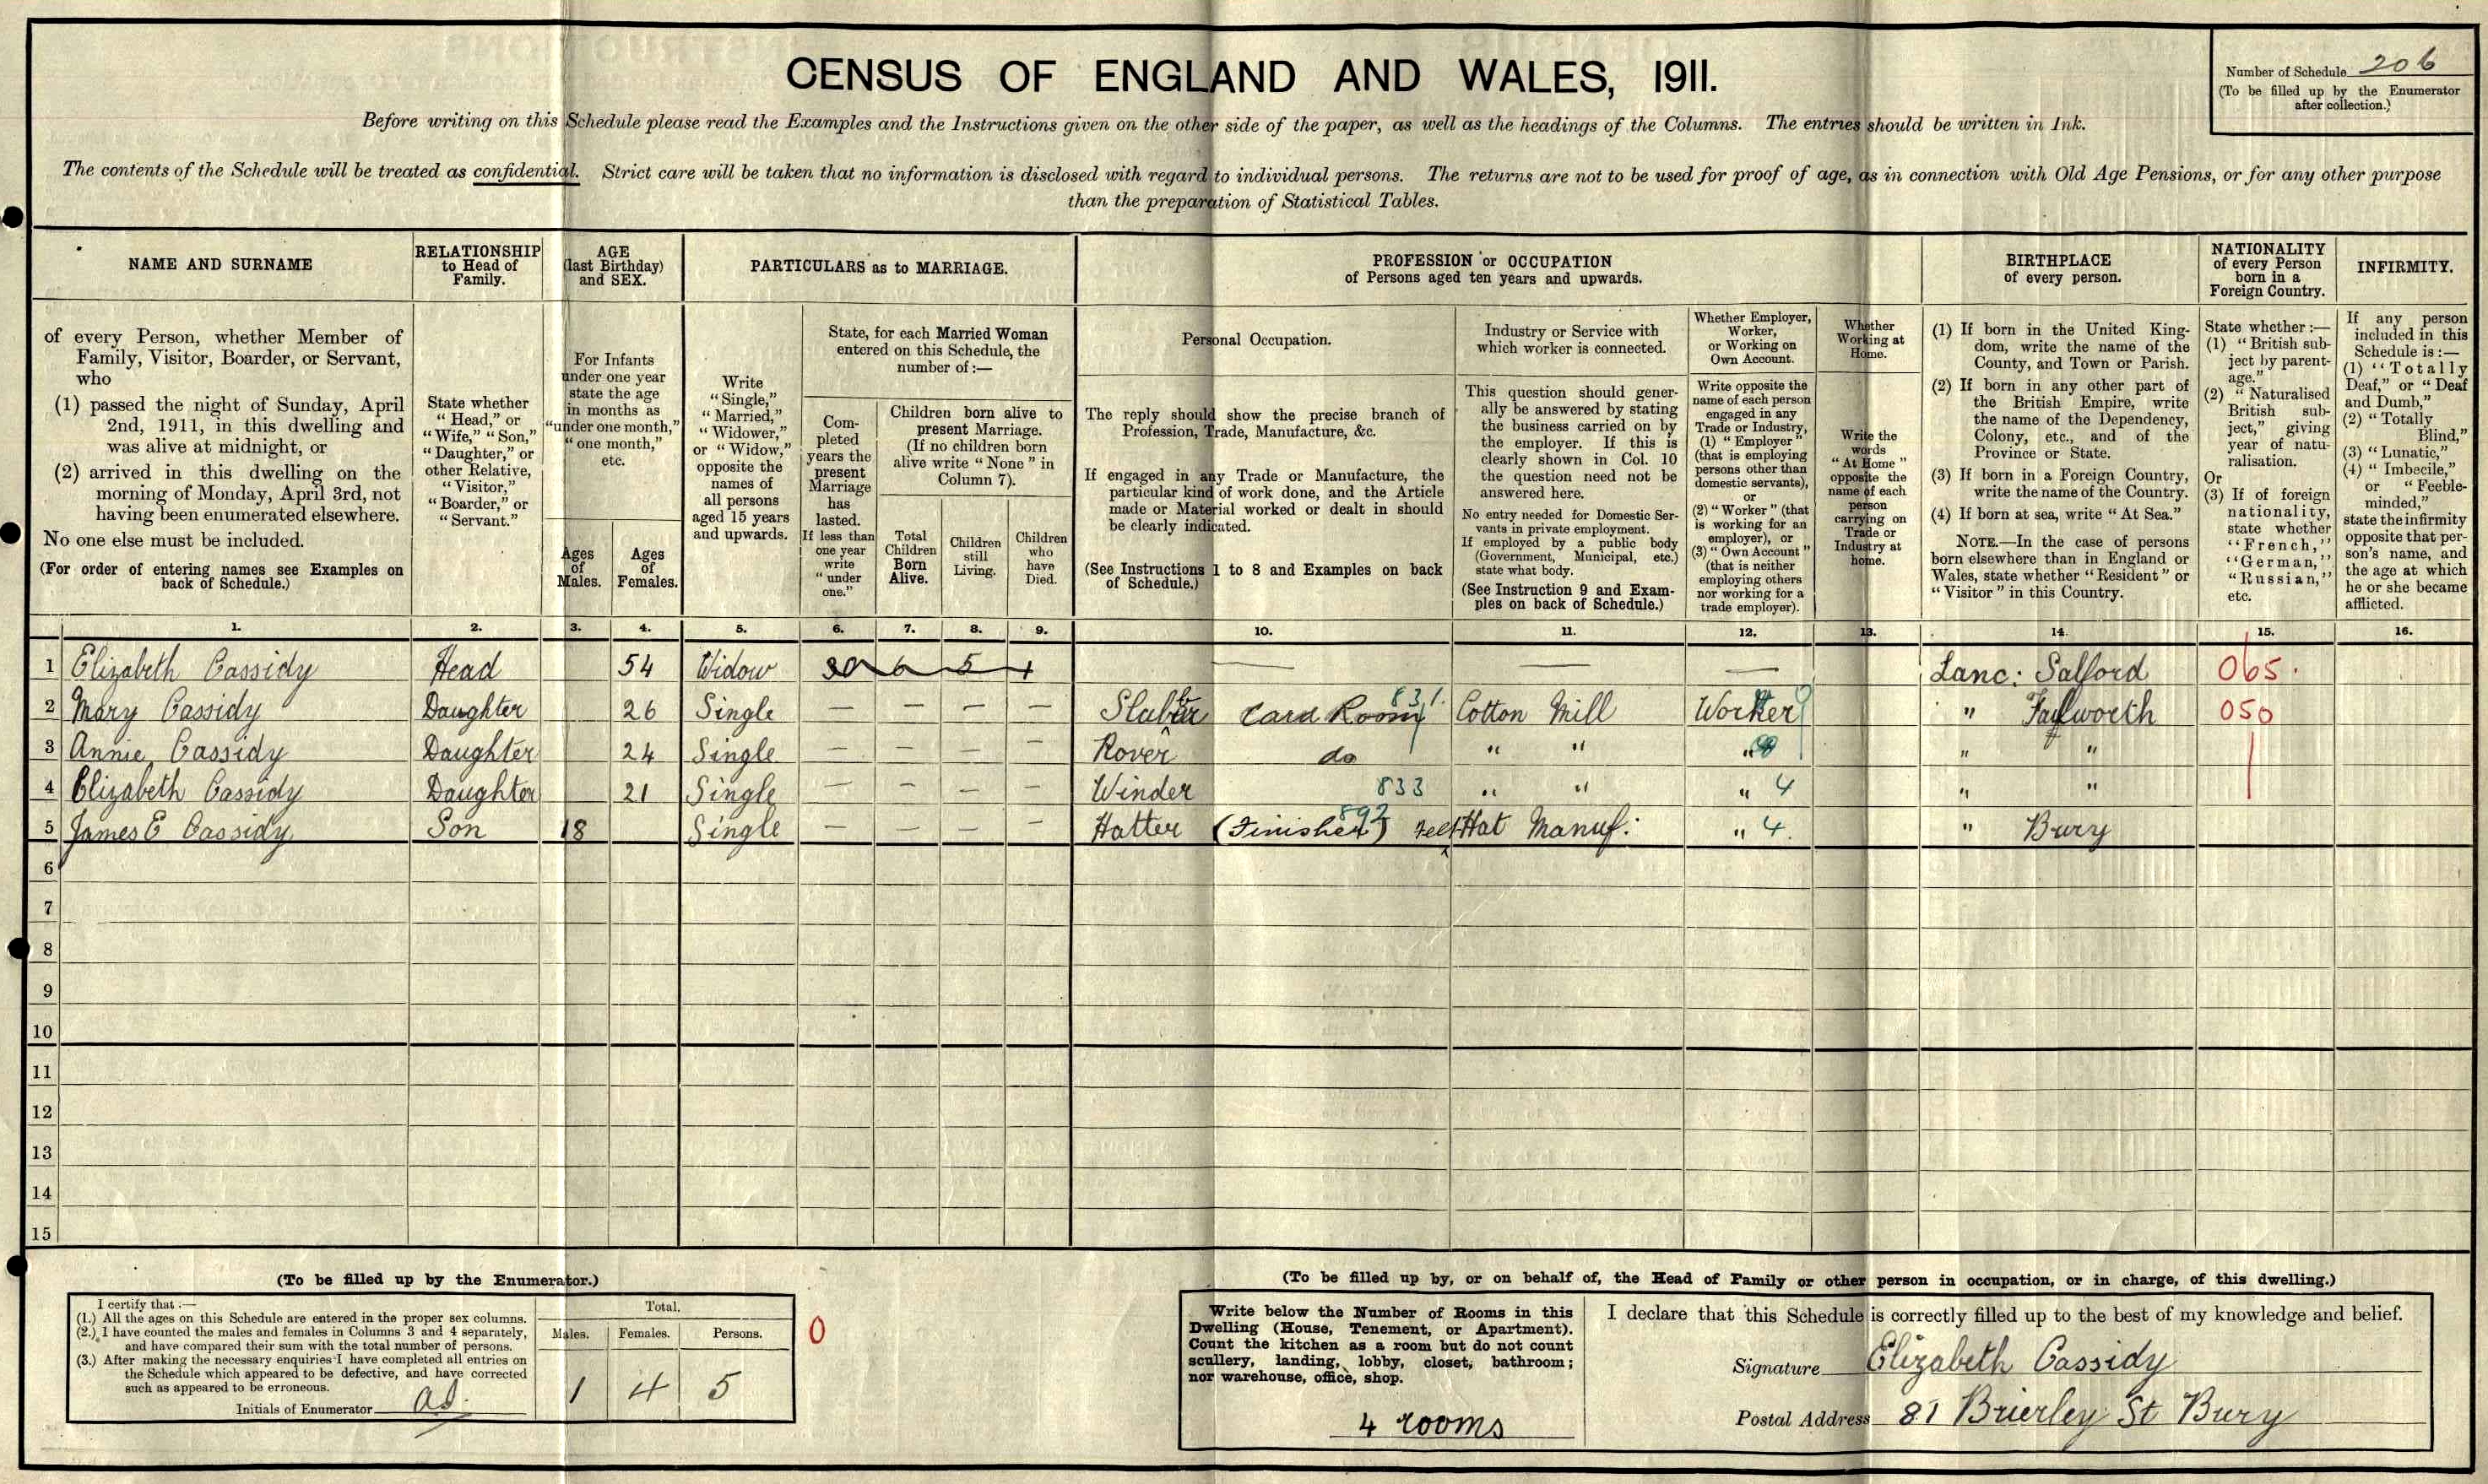 CENSUS OF ENGLAND AND WALES, 1911.
Number of Schedule 206
(To be filled up by the Enumerator
after collection.)
Before writing on this Schedule please read the Examples and the Instructions given on the other side of the paper, as well as the headings of the Columns. The entries should be written in Ink.
The contents of the Schedule will be treated as confidential. Strict care will be taken that no information is disclosed with regard to individual persons. The returns are not to be used for proof of age, as in connection with Old Age Pensions, or for any other purpose
than the preparation of Statistical Tables.
NAME AND SURNAME
of every Person, whether Member of
Family, Visitor, Boarder, or Servant,
who
(1) passed the night of Sunday, April
2nd, 1911, in this dwelling and
was alive at midnight, or
(2) arrived in this dwelling on the
morning of Monday, April 3rd, not
having been enumerated elsewhere.
No one else must be included.
(For order of entering names see Examples on
back of Schedule.)
RELATIONSHIP
to Head of
Family.
State whether
"Head," or
"Wife," "Son,"
"Daughter," or
other Relative,
"Visitor,"
"Boarder," or
"Servant."
AGE
(last Birthday)
and SEX.
For Infants
under one year
state the age
in months as
"under one month,"
"one month,"
etc.
Ages
of
Males.
Ages
of
Females.
PARTICULARS as to MARRIAGE.
Write
"Single,"
"Married,"
"Widower,"
or "Widow,"
opposite the
names of
all persons
aged 15 years
and upwards.
State, for each Married Woman
entered on this Schedule, the
number of :—
Com-
pleted
years the
present
Marriage
has
lasted.
If less than
one year
write
"under
one."
Children born alive to
present Marriage.
(If no children born
alive write "None" in
Column 7).
Total
Children
Born
Alive.
Children
still
Living.
Children
who
have
Died.
PROFESSION or OCCUPATION
of Persons aged ten years and upwards.
Personal Occupation.
The reply should show the precise branch of
Profession, Trade, Manufacture, &c.
If engaged in any Trade or Manufacture, the
particular kind of work done, and the Article
made or Material worked or dealt in should
be clearly indicated.
(See Instructions 1 to 8 and Examples on back
of Schedule.)
Industry or Service with
which worker is connected.
This question should gener-
ally be answered by stating
the business carried on by
the employer. If this is
clearly shown in Col. 10
the question need not be
answered here.
No entry needed for Domestic Ser-
vants in private employment.
If employed by a public body
(Government, Municipal, etc.)
state what body.
(See Instruction 9 and Exam-
ples on back of Schedule.)
Whether Employer,
Worker,
or Working on
Own Account.
Write opposite the
name of each person
engaged in any
Trade or Industry,
(1) "Employer"
(that is employing
persons other than
domestic servants),
or
(2) "Worker" (that
is working for an
employer), or
(3) "Own Account"
(that is neither
employing others
nor working for a
trade employer).
Whether
Working at
Home.
Write the
words
"At Home"
opposite the
name of each
person
carrying on
Trade or
Industry at
home.
BIRTHPLACE
of every person.
(1) If born in the United King-
dom, write the name of the
County, and Town or Parish.
(2) If born in any other part of
the British Empire, write
the name of the Dependency,
Colony, etc., and of the
Province or State.
(3) If born in a Foreign Country,
write the name of the Country.
(4) If born at sea, write "At Sea."
NOTE.—In the case of persons
born elsewhere than in England or
Wales, state whether "Resident" or
"Visitor" in this Country.
NATIONALITY
of every Person
born in a
Foreign Country.
State whether :—
(1) "British sub-
ject by parent-
age."
(2) "Naturalised
British sub-
ject," giving
year of natu-
ralisation.
Or
(3) If of foreign
nationality,
state whether
"French,"
"German,"
"Russian,"
etc.
INFIRMITY.
If any person
included in this
Schedule is :—
(1) "Totally
Deaf," or "Deaf
and Dumb,"
(2) "Totally
Blind,"
(3) "Lunatic,"
(4) "Imbecile,"
or "Feeble-
minded,"
state the infirmity
opposite that per-
son's name, and
the age at which
he or she became
afflicted.
1. 2. 3. 4. 5. 6. 7. 8. 9. 10. 11. 12. 13. 14. 15. 16.
1 Elizabeth Cassidy Head 54 Widow 30 6 5 1 — — — Lanc: Salford 065.
2 Mary Cassidy Daughter 26 Single — — — — Slabber Card Room 831 Cotton Mill Worker " Failsworth 050
3 Annie Cassidy Daughter 24 Single — — — — Rover do " " " " "
4 Elizabeth Cassidy Daughter 21 Single — — — — Winder 833 " " " 4 " "
5 James E Cassidy Son 18 Single — — — — Hatter (Finisher) 892 Felt Hat Manuf: " 4. " Bury
6
7
8
9
10
11
12
13
14
15
(To be filled up by the Enumerator.)
I certify that :—
(1.) All the ages on this Schedule are entered in the proper sex columns.
(2.) I have counted the males and females in Columns 3 and 4 separately,
and have compared their sum with the total number of persons.
(3.) After making the necessary enquiries I have completed all entries on
the Schedule which appeared to be defective, and have corrected
such as appeared to be erroneous.
Initials of Enumerator
Total.
Males. Females. Persons.
1 4 5
0
(To be filled up by, or on behalf of, the Head of Family or other person in occupation, or in charge, of this dwelling.)
Write below the Number of Rooms in this
Dwelling (House, Tenement, or Apartment).
Count the kitchen as a room but do not count
scullery, landing, lobby, closet, bathroom;
nor warehouse, office, shop.
4 rooms
I declare that this Schedule is correctly filled up to the best of my knowledge and belief.
Signature Elizabeth Cassidy
Postal Address 81 Brierley St Bury